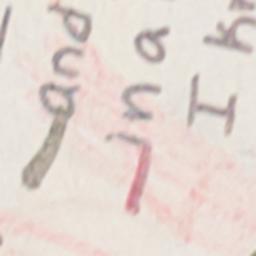 and
in a
I